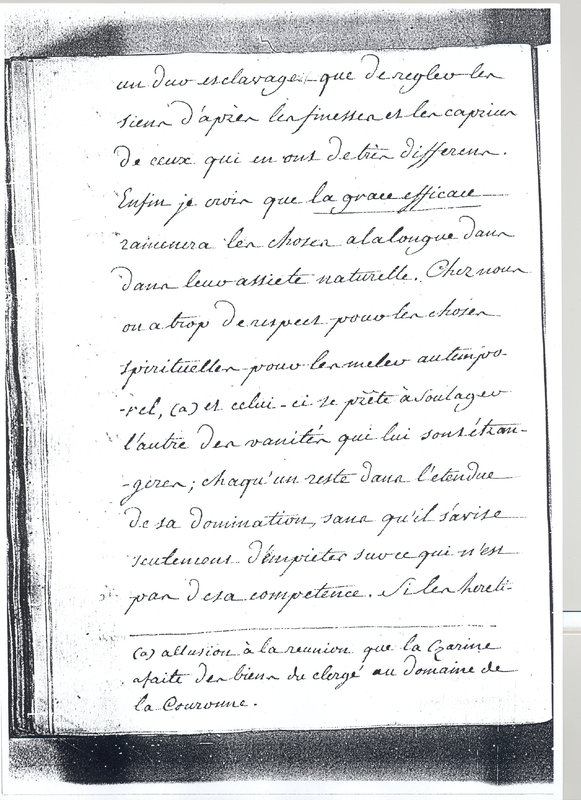 un dur esclavage, que de regler les
siens d'après les finesses et les caprices
de ceux qui en ont de très differens.
Enfin je crois que la grace efficace
ramenera les choses a la longue dans
dans leur assiete naturelle. Chez nous
on a trop de respect pour les choses
spirituelles pour les meler au tempo-
-rel, (a) et celui-ci se prête à soulager
l'autre des vanités qui lui sont étran-
-geres; chaqu'un reste dans l'etendue
de sa domination, sans qu'il s'avise
seulement d'empieter sur ce qui n'est
pas de sa competence. Si les hereti-
(a) allusion à la reunion que la Czarine
a faite des biens du clergé au domaine de
la Couronne.